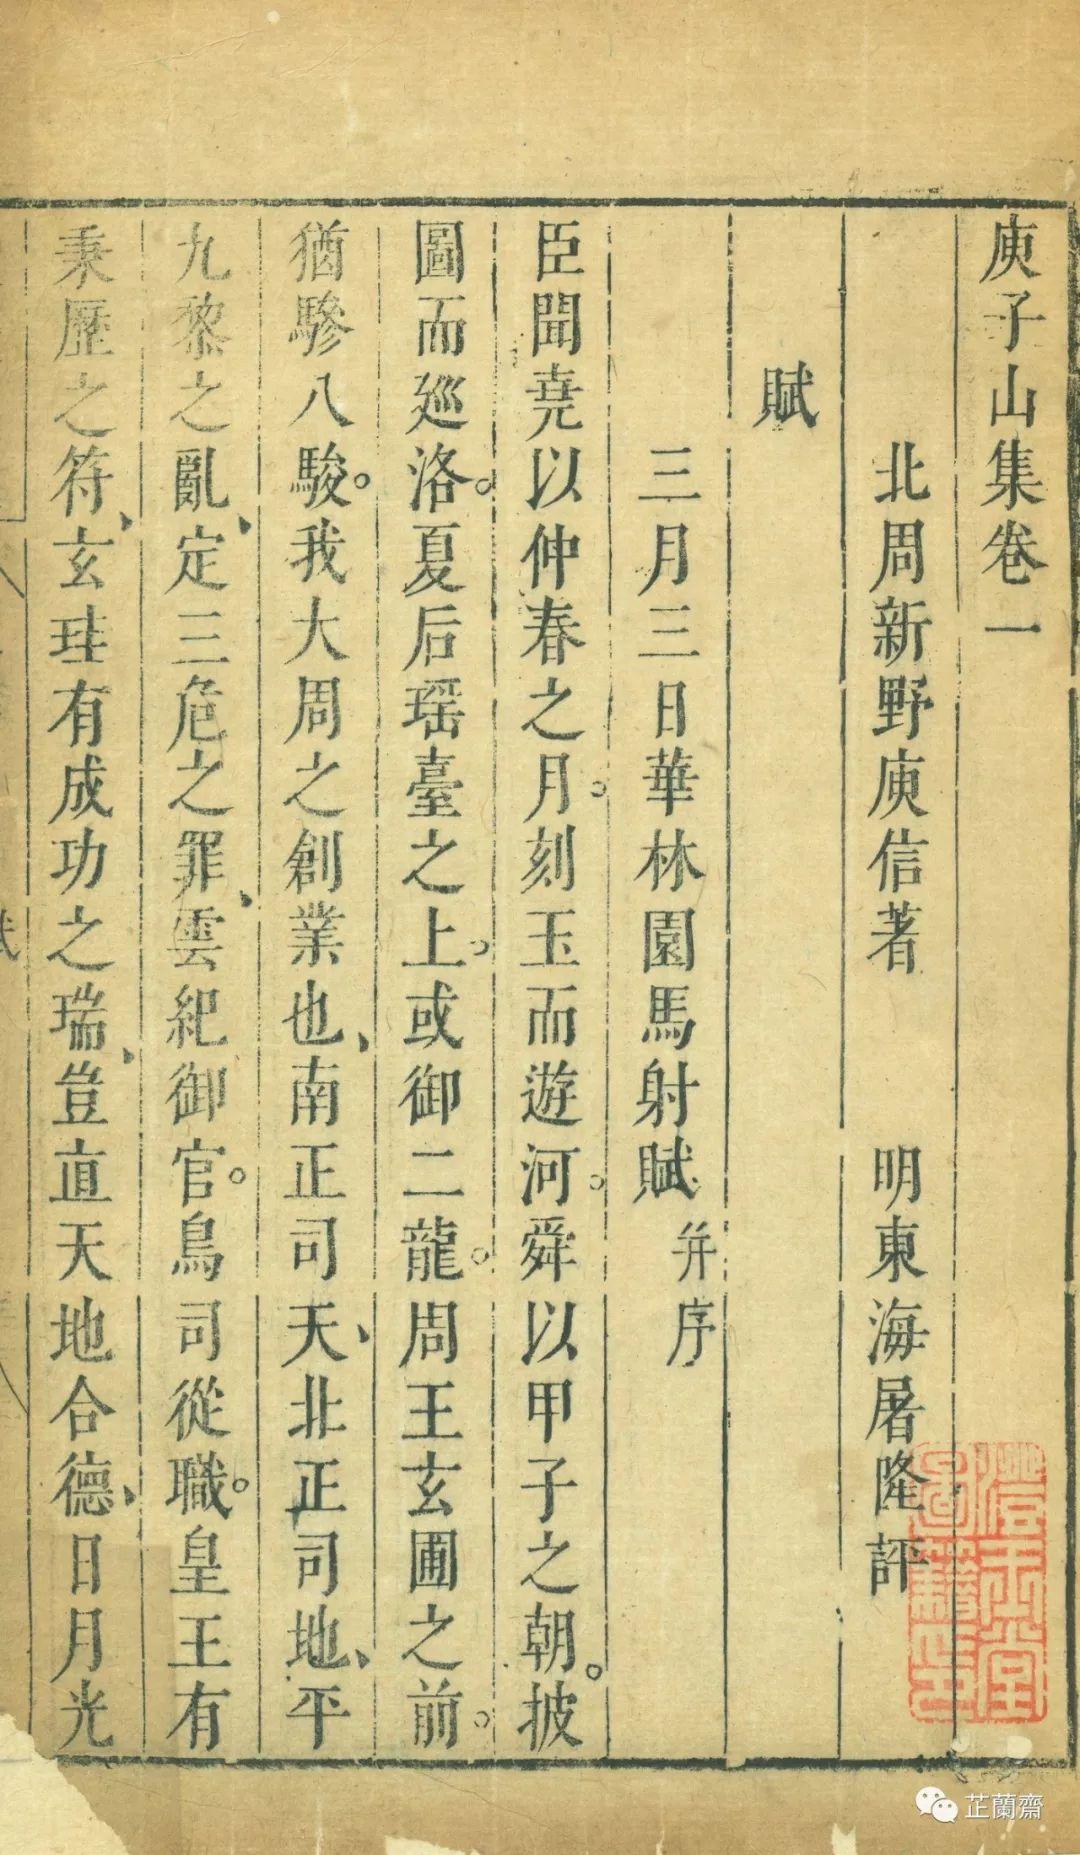 庾子山集卷一
北周新野庾信著　明東海屠隆評
賦
三月三日華林園馬射賦 并序
臣聞堯以仲春之月。刻玉而遊河。舜以甲子之朝。披
圖而廵洛。夏后瑶臺之上。或御二龍。周王玄圃之前。
猶驂八駿。我大周之創業也、南正司天、北正司地、平
九黎之亂、定三危之罪、雲紀御官。鳥司從職。皇王有
秉歷之符、玄珪有成功之瑞、豈直天地合德、日月光
賦
芷蘭齋